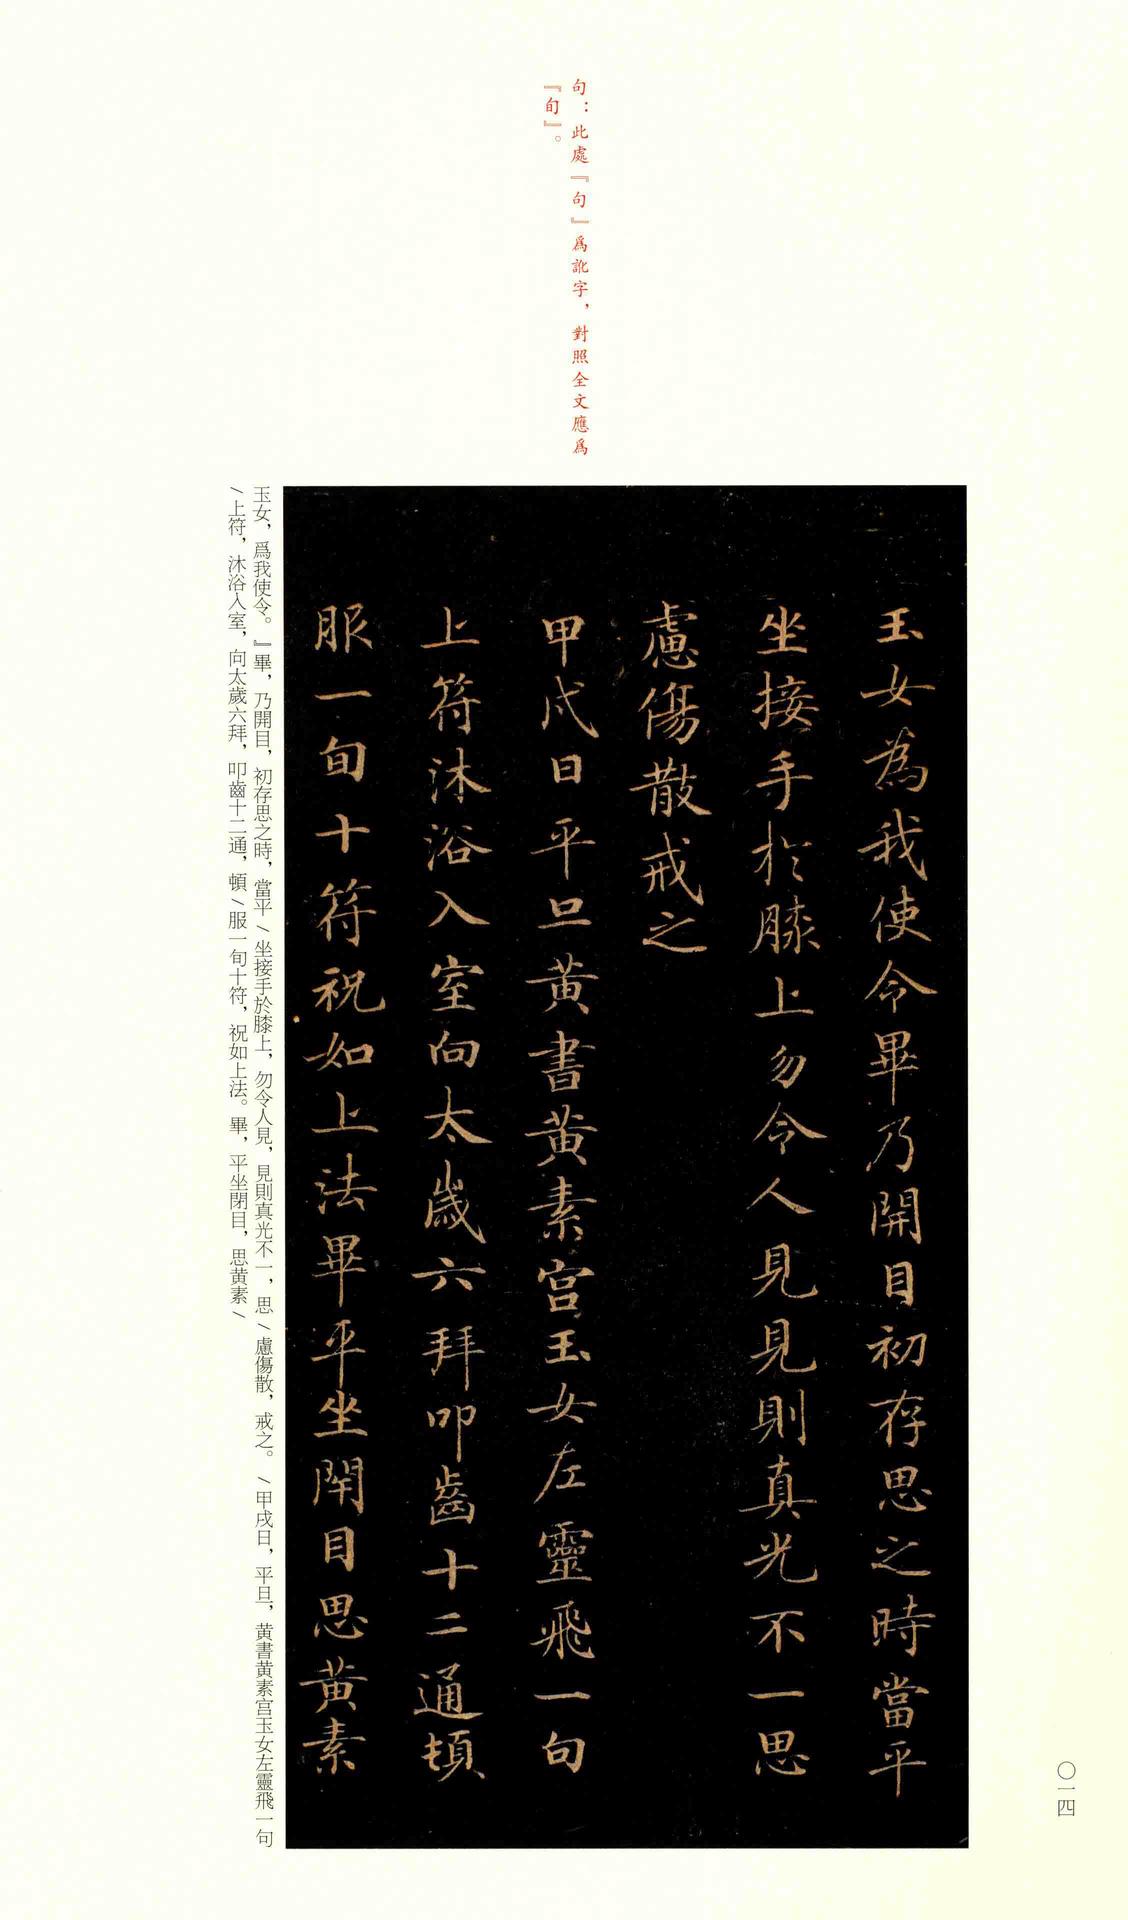 句：此處『句』爲訛字，對照全文應爲
『旬』。
玉女為我使令畢乃開目初存思之時當平
坐接手於膝上勿令人見見則真光不一思
慮傷散戒之
甲戌日平旦黃書黃素宮玉女左靈飛一句
上符沐浴入室向太歲六拜叩齒十二通頓
服一旬十符祝如上法畢平坐閉目思黃素
玉女，爲我使令。』畢，乃開目，初存思之時，當平／坐接手於膝上，勿令人見，見則真光不一，思／慮傷散，戒之。／甲戌日，平旦，黄書黄素宫玉女左靈飛一句
／上符，沐浴入室，向太歲六拜，叩齒十二通，頓／服一旬十符，祝如上法。畢，平坐閉目，思黄素／
〇一四